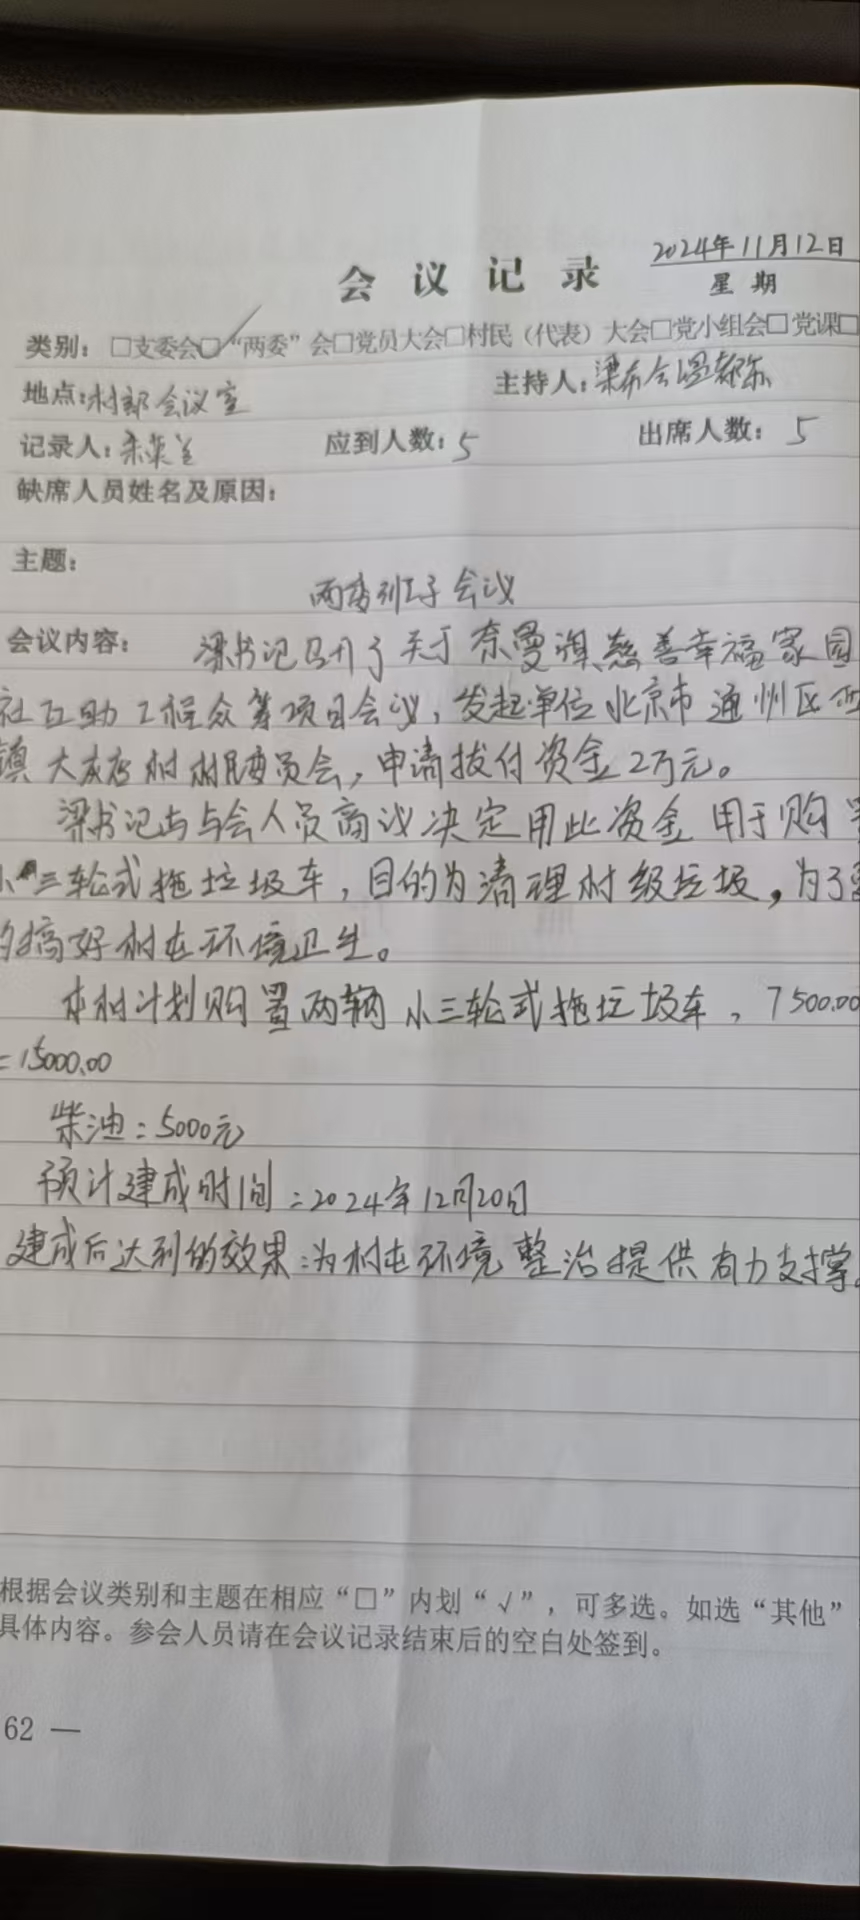 2024年11月12日
会议记录
星期
类别：□支委会□“两委”会□党员大会□村民（代表）大会□党小组会□党课□
地点：村部会议室
主持人：梁布合温都尔
记录人：
应到人数：5
出席人数：5
缺席人员姓名及原因：
主题：
两委班子会议
会议内容：梁书记召开了关于奈曼旗慈善幸福家园
社互助工程众筹项目会议，发起单位北京市通州区西
镇大本店村村民委员会，申请拔付资金2万元。
梁书记与与会人员商议决定用此资金用于购
小三轮式拖垃圾车，目的为清理村级垃圾，为了
的搞好村屯环境卫生。
本村计划购置两辆小三轮式拖垃圾车，7500.00
=15000.00
柴油：5000元
预计建成时间：2024年12月20日
建成后达到的效果：为村屯环境整治提供有力支撑。
根据会议类别和主题在相应“□”内划“√”，可多选。如选“其他”
具体内容。参会人员请在会议记录结束后的空白处签到。
62 —